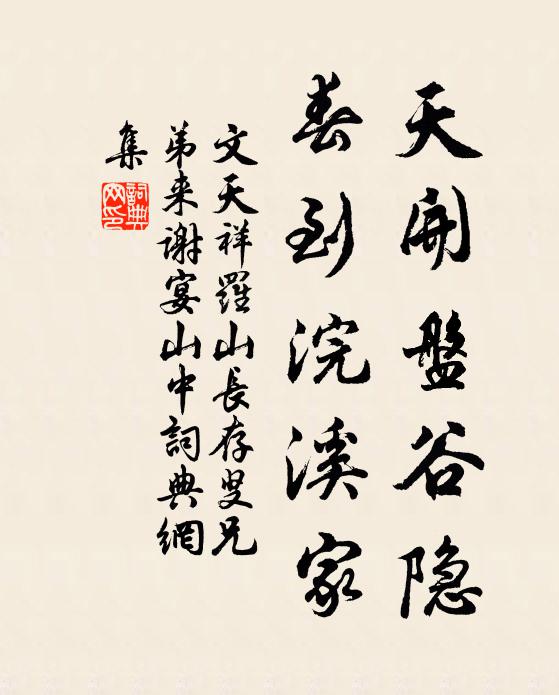 天開盤谷隐
春到浣溪家
文天祥羅山長存叟兄
弟来謝宴山中詞典網
集
詞典
网印